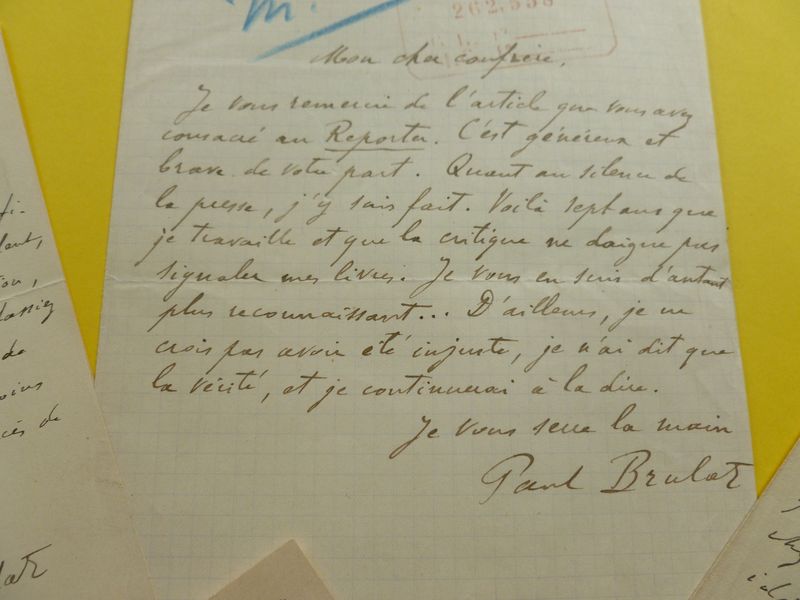 m.
262,558
Mon cher confrère,
Je vous remercie de l'article que vous avez
consacré au Reporter. C'est généreux et
brave de votre part. Quant au silence de
la presse, j'y suis fait. Voilà sept ans que
je travaille et que la critique ne daigne pas
signaler mes livres. Je vous en suis d'autant
plus reconnaissant... D'ailleurs, je ne
crois pas avoir été injuste, je n'ai dit que
la vérité, et je continuerai à la dire.
Je vous serre la main
Paul Brulat
fi-
de
de